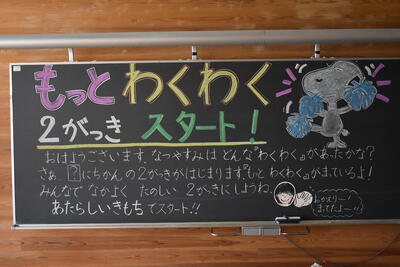 もっと わくわく
2がっき スタート!
おはようございます。なつやすみは どんな『わくわく』があったかな?
さぁ、?にちかんの 2がっきがはじまります『もっと わくわく』がまているよ!
みんなで なかよく たのしい 2がっきにしようね。
あたらしいきもち でスタート!!
おかえりー!
まってたよ〜